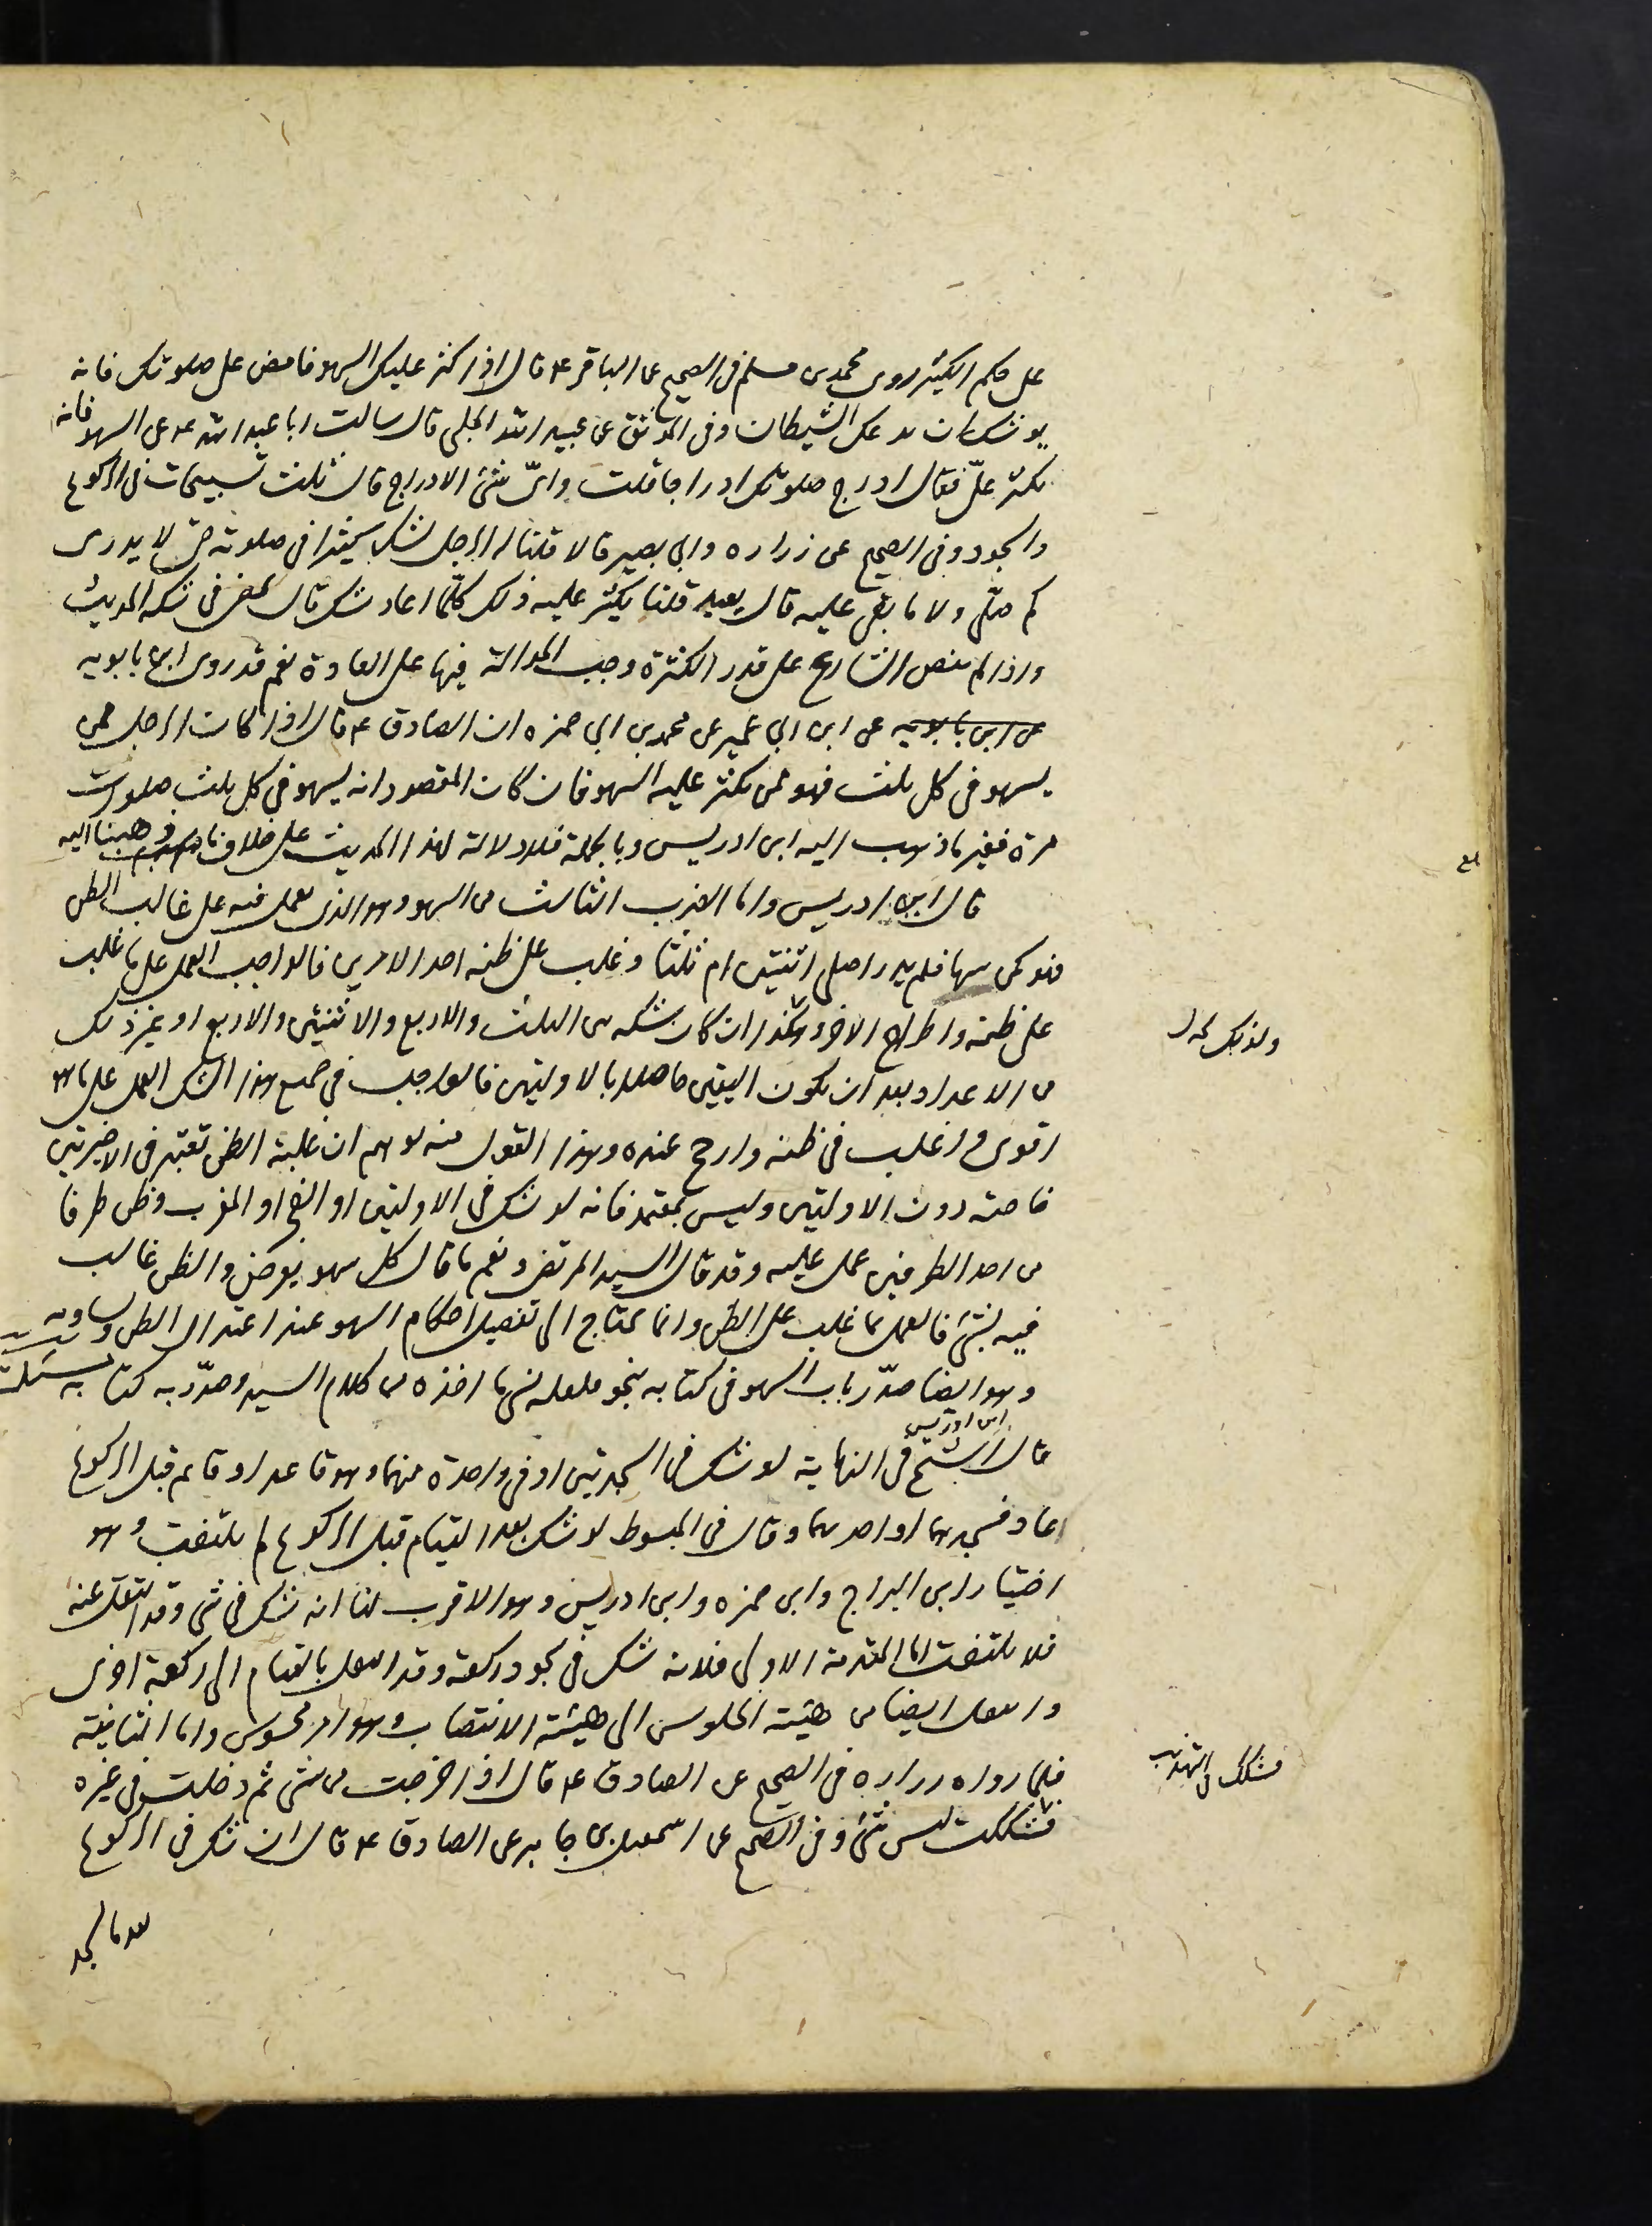 على حكم الكثير روى محمد بن مسلم فى الصحيح عن الباقر ع قال اذا كثر عليك السهو فامض على صلوتك فانه
يوشك ان يدعك الشيطان وفى الموثق عن عبيد الله الحلبى قال سالت ابا عبد الله ع عن السهو فانه
يكثر علىّ فقال ادرج صلوتك ادراجا قلت واىّ شئ الادراج قال ثلث تسبيحات فى الركوع
والسجود وفى الصحيح عن زراره وابى بصير قالا قلنا له الرجل يشك كثيرا فى صلوته حتى لا يدرى
كم صلّى ولا ما بقى عليه قال يعيد قلنا يكثر عليه ذلك كلّما اعاد شك قال يمضى فى شكه الحديث
واذا لم ينص الشارع على قدر الكثرة وجب الحوالة فيها على العادة نعم قد روى ابن بابويه
عن ابن بابويه عن ابن ابى عمير عن محمد بن ابى حمزه ان الصادق ع قال اذا كان الرجل ممن
يسهو فى كل ثلث فهو ممن يكثر عليه السهو فان كان المقصود انه يسهو فى كل ثلث صلوات
مرة فغير ما ذهب اليه ابن ادريس وبالجملة فلا دلالة لهذا الحديث على خلاف ما ذهبنا اليه
قال ابن ادريس واما الضرب الثالث من السهو وهو الذى يعمل فيه على غالب الظن
فهو كمن سها فلم يدر اصلى اثنتين ام ثلثا وغلب على ظنه احد الامرين فالواجب العمل على ما غلب
على ظنه واطراح الاخر وهكذا ان كان شكه بين الثلث والاربع والاثنتين والاربع او غير ذلك
من الاعداد بعد ان يكون اليقين حاصلا بالاوليتين فالواجب فى جميع هذا الشك العمل على ما هو
اقوى واغلب فى ظنه وارجح عنده وهذا القول منه يوهم ان غلبة الظن تعتبر فى الاخيرتين
خاصة دون الاوليتين وليس بمعتمد فانه لو شك فى الاوليتين او الفجر او المغرب وظن طرفا
من احد الطرفين عمل عليه وقد قال السيد المرتضى ونعم ما قال كل سهو يعرض والظن غالب
فيه بشئ فالعمل بما غلب على الظن وانما يحتاج الى تفصيل احكام السهو عند اعتدال الظن وتساويه
وهو ايضا صدّر باب السهو فى كتابه بنحو ما اخذه من كلام السيد وصدّر به كتابه
ابن ادريس
قال الشيخ فى النهاية لو شك فى السجدتين او فى واحدة منهما وهو قاعد او قائم قبل الركوع
اعاد فسجدهما او احدهما وقال فى المبسوط لو شك بعد القيام قبل الركوع لم يلتفت وهو
اختيار ابن البراج وابن حمزه وابن ادريس وهو الاقرب لنا انه شك فى شى وقد انتقل عنه
فلا يلتفت اما المقدمة الاولى فلانه شك فى سجود ركعة وقد انتقل بالقيام الى ركعة اخرى
وانتقل ايضا من هيئة الجلوس الى هيئة الانتصاب وهو امر محسوس واما الثانية
فلما رواه زراره فى الصحيح عن الصادق ع قال اذا خرجت من شى ثم دخلت فى غيره
فشككت ليس بشئ وفى الصحيح عن اسمعيل بن جابر عن الصادق ع قال ان شك فى الركوع
بعد ما سجد
بلغ
فشكك فى التهذيب